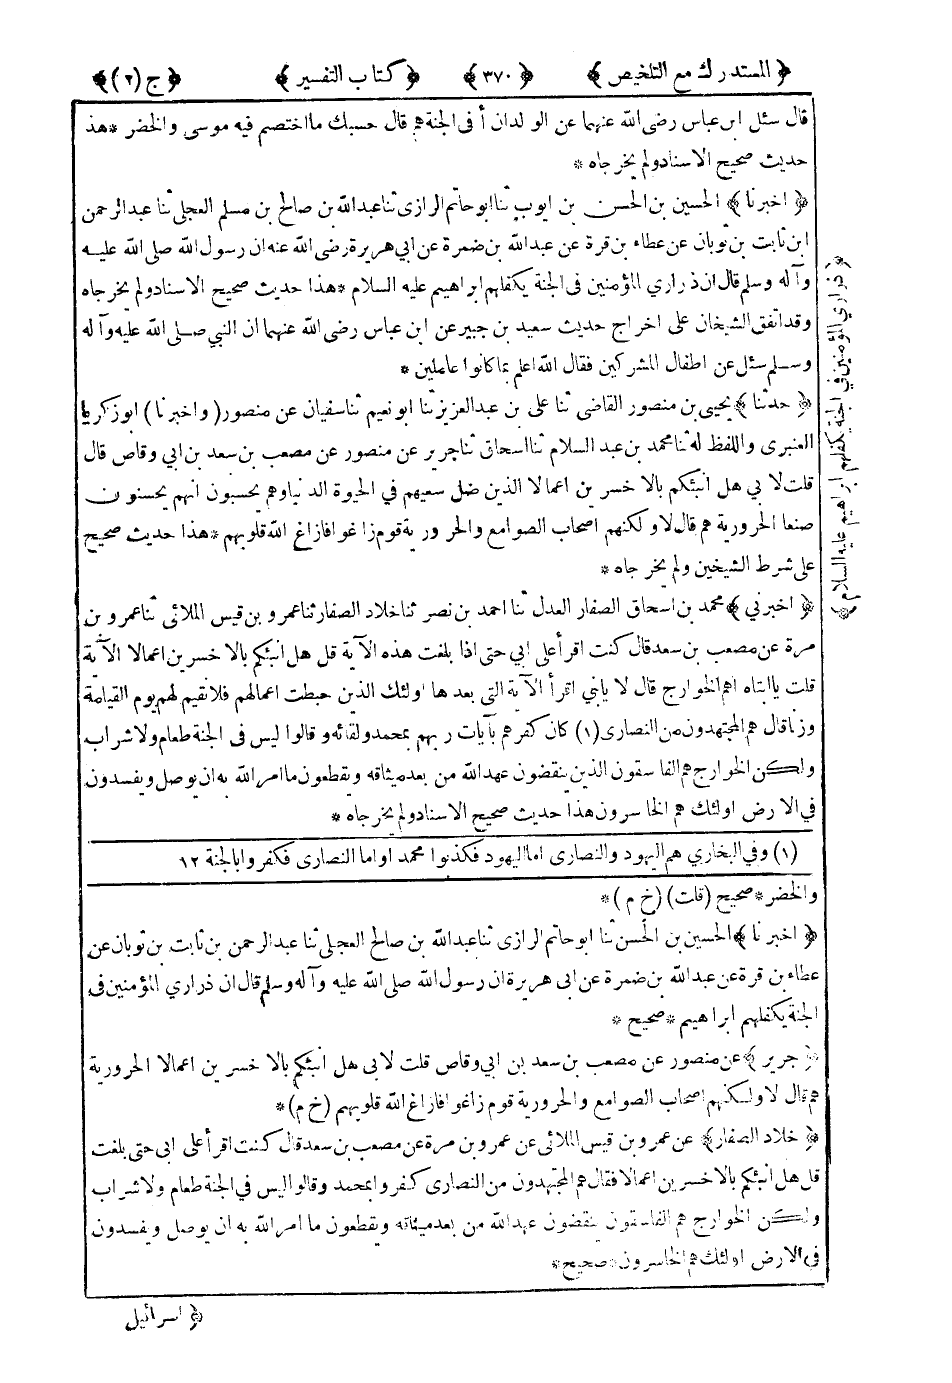 ﴿ المستدرك مع التلخيص ﴾ ﴿ ٣٧٠ ﴾ ﴿ كتاب التفسير ﴾ ﴿ ج (٢) ﴾
قال سئل ابن عباس رضى الله عنهما عن الولدان أ فى الجنة هم قال حسبك ما اختصم فيه موسى والخضر * هذا
حديث صحيح الاسناد ولم يخرجاه *
﴿ اخبرنا ﴾ الحسين بن الحسن بن ايوب ثنا ابوحاتم الرازى ثنا عبدالله بن صالح بن مسلم العجلى ثنا عبدالرحمن
ابن ثابت بن ثوبان عن عطاء بن قرة عن عبدالله بن ضمرة عن ابي هريرة رضى الله عنه ان رسول الله صلى الله عليه
وآله وسلم قال ان ذراري المؤمنين فى الجنة يكفلهم ابراهيم عليه السلام * هذا حديث صحيح الاسناد ولم يخرجاه
وقد اتفق الشيخان على اخراج حديث سعيد بن جبير عن ابن عباس رضى الله عنهما ان النبي صلى الله عليه وآله
وسلم سئل عن اطفال المشركين فقال الله اعلم بما كانوا عاملين *
﴿ حدثنا ﴾ يحيى بن منصور القاضى ثنا على بن عبدالعزيز ثنا ابو نعيم ثنا سفيان عن منصور (واخبرنا) ابوزكريا
العنبرى واللفظ له ثنا محمد بن عبد السلام ثنا اسحاق ثنا جرير عن منصور عن مصعب بن سعد بن ابي وقاص قال
قلت لابي هل انبئكم بالاخسرين اعمالا الذين ضل سعيهم في الحيوة الدنيا وهم يحسبون انهم يحسنون
صنعا الحرورية هم قال لا ولكنهم اصحاب الصوامع والحرورية قوم زاغوا فازاغ الله قلوبهم * هذا حديث صحيح
على شرط الشيخين ولم يخرجاه *
﴿ اخبرني ﴾ محمد بن اسحاق الصفار العدل ثنا احمد بن نصر ثنا خلاد الصفار ثنا عمرو بن قيس الملائى ثنا عمرو بن
مرة عن مصعب بن سعد قال كنت اقرأ على ابي حتى اذا بلغت هذه الآية قل هل انبئكم بالاخسرين اعمالا الآية
قلت يا ابتاه اهم الخوارج قال لا يابني اقرأ الآية التى بعدها اولئك الذين حبطت اعمالهم فلا نقيم لهم يوم القيامة
وزنا قال هم المجتهدون من النصارى (١) كان كفرهم بآيات ربهم بمحمد ولقائه و قالوا ليس فى الجنة طعام ولا شراب
ولكن الخوارج هم الفاسقون الذين ينقضون عهدالله من بعد ميثاقه ويقطعون ما امر الله به ان يوصل ويفسدون
في الارض اولئك هم الخاسرون هذا حديث صحيح الاسناد ولم يخرجاه *
(١) وفي البخاري هم اليهود والنصارى اما اليهود فكذبوا محمدا واما النصارى فكفروا بالجنة ١٢
والخضر * صحيح (قلت) (خ م) *
﴿ اخبرنا ﴾ الحسين بن الحسن ثنا ابوحاتم الرازى ثنا عبدالله بن صالح العجلى ثنا عبدالرحمن بن ثابت بن ثوبان عن
عطاء بن قرة عن عبدالله بن ضمرة عن ابى هريرة ان رسول الله صلى الله عليه وآله وسلم قال ان ذراري المؤمنين فى
الجنة يكفلهم ابراهيم * صحيح *
﴿ جرير ﴾ عن منصور عن مصعب بن سعد بن ابي وقاص قلت لابى هل انبئكم بالاخسرين اعمالا الحرورية
هم قال لا ولكنهم اصحاب الصوامع والحرورية قوم زاغوا فازاغ الله قلوبهم (خ م) *
﴿ خلاد الصفار ﴾ عن عمرو بن قيس الملائى عن عمرو بن مرة عن مصعب بن سعد قال كنت اقرأ على ابى حتى بلغت
قل هل انبئكم بالاخسرين اعمالا فقال هم المجتهدون من النصارى كفروا بمحمد وقالوا ليس في الجنة طعام ولا شراب
ولكن الخوارج هم الفاسقون ينقضون عهدالله من بعد ميثاقه ويقطعون ما امر الله به ان يوصل ويفسدون
فى الارض اولئك هم الخاسرون * صحيح *
﴿ اسرائيل
﴿ ذراري المؤمنين في الجنة يكفلهم ابراهيم عليه السلام ﴾